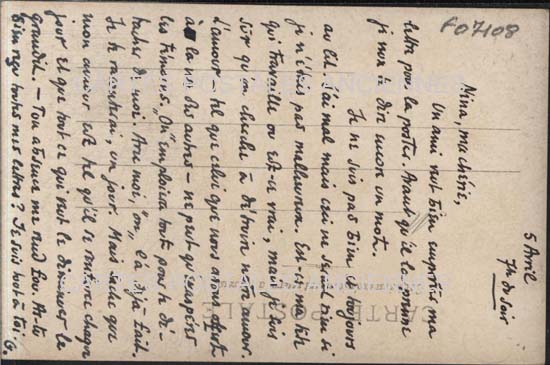 F07108
5 Avril
7h du soir
Nina, ma chérie,
Un ami veut bien emporter ma
lettre pour la poster. Avant qu'il la
j'ai à dire encore un mot.
Je ne suis pas bien et toujours
au lit. J'ai mal mais ceci ne serait rien si
je n'étais pas malheureux. Est-ce ma tête
qui travaille ou est-ce vrai, mais je suis
sûr qu'on cherche à détruire notre amour.
L'amour tel que celui que nous avons
à la vue des autres - ne peut qu'exaspérer
les témoins. "On" emploiera tout pour te dé-
tacher de moi. Avec moi, "on" l'a déjà fait.
Je te raconterai, un jour. Mais sache que
mon amour est tel qu'il se renforce chaque
jour et que tout ce qui veut le diminuer le
grandit. - Ton absence me rend fou. As-tu
bien reçu toutes mes lettres? Je suis tout à toi. G.
CARTE POSTALE